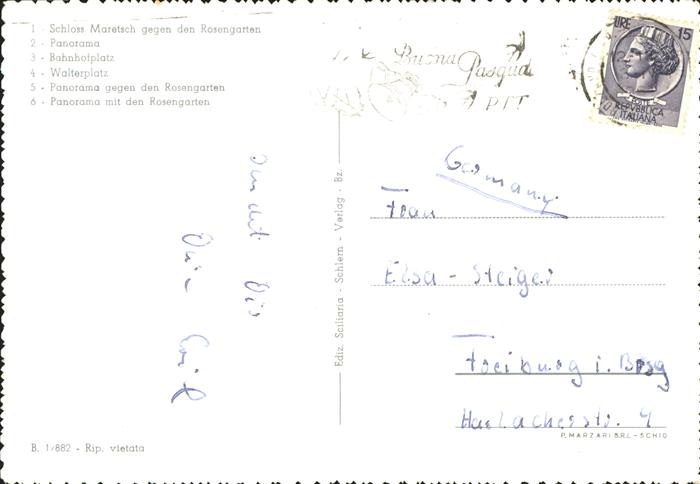 1 - Schloss Maretsch gegen den Rosengarten
2 - Panorama
3 - Bahnhofplatz
4 - Walterplatz
5 - Panorama gegen den Rosengarten
6 - Panorama mit den Rosengarten
Buona Pasqua
PTT
LIRE 15
POSTE
REPVBBLICA
ITALIANA
Germany
Frau
Elsa - Steiger
Freiburg i. Brsg
Haslacherstr. 4
Dein
Emil
Ediz. Sciliaria - Schlern - Verlag - Bz.
B. 1/882 - Rip. vietata
P. MARZARI S.R.L. - SCHIO